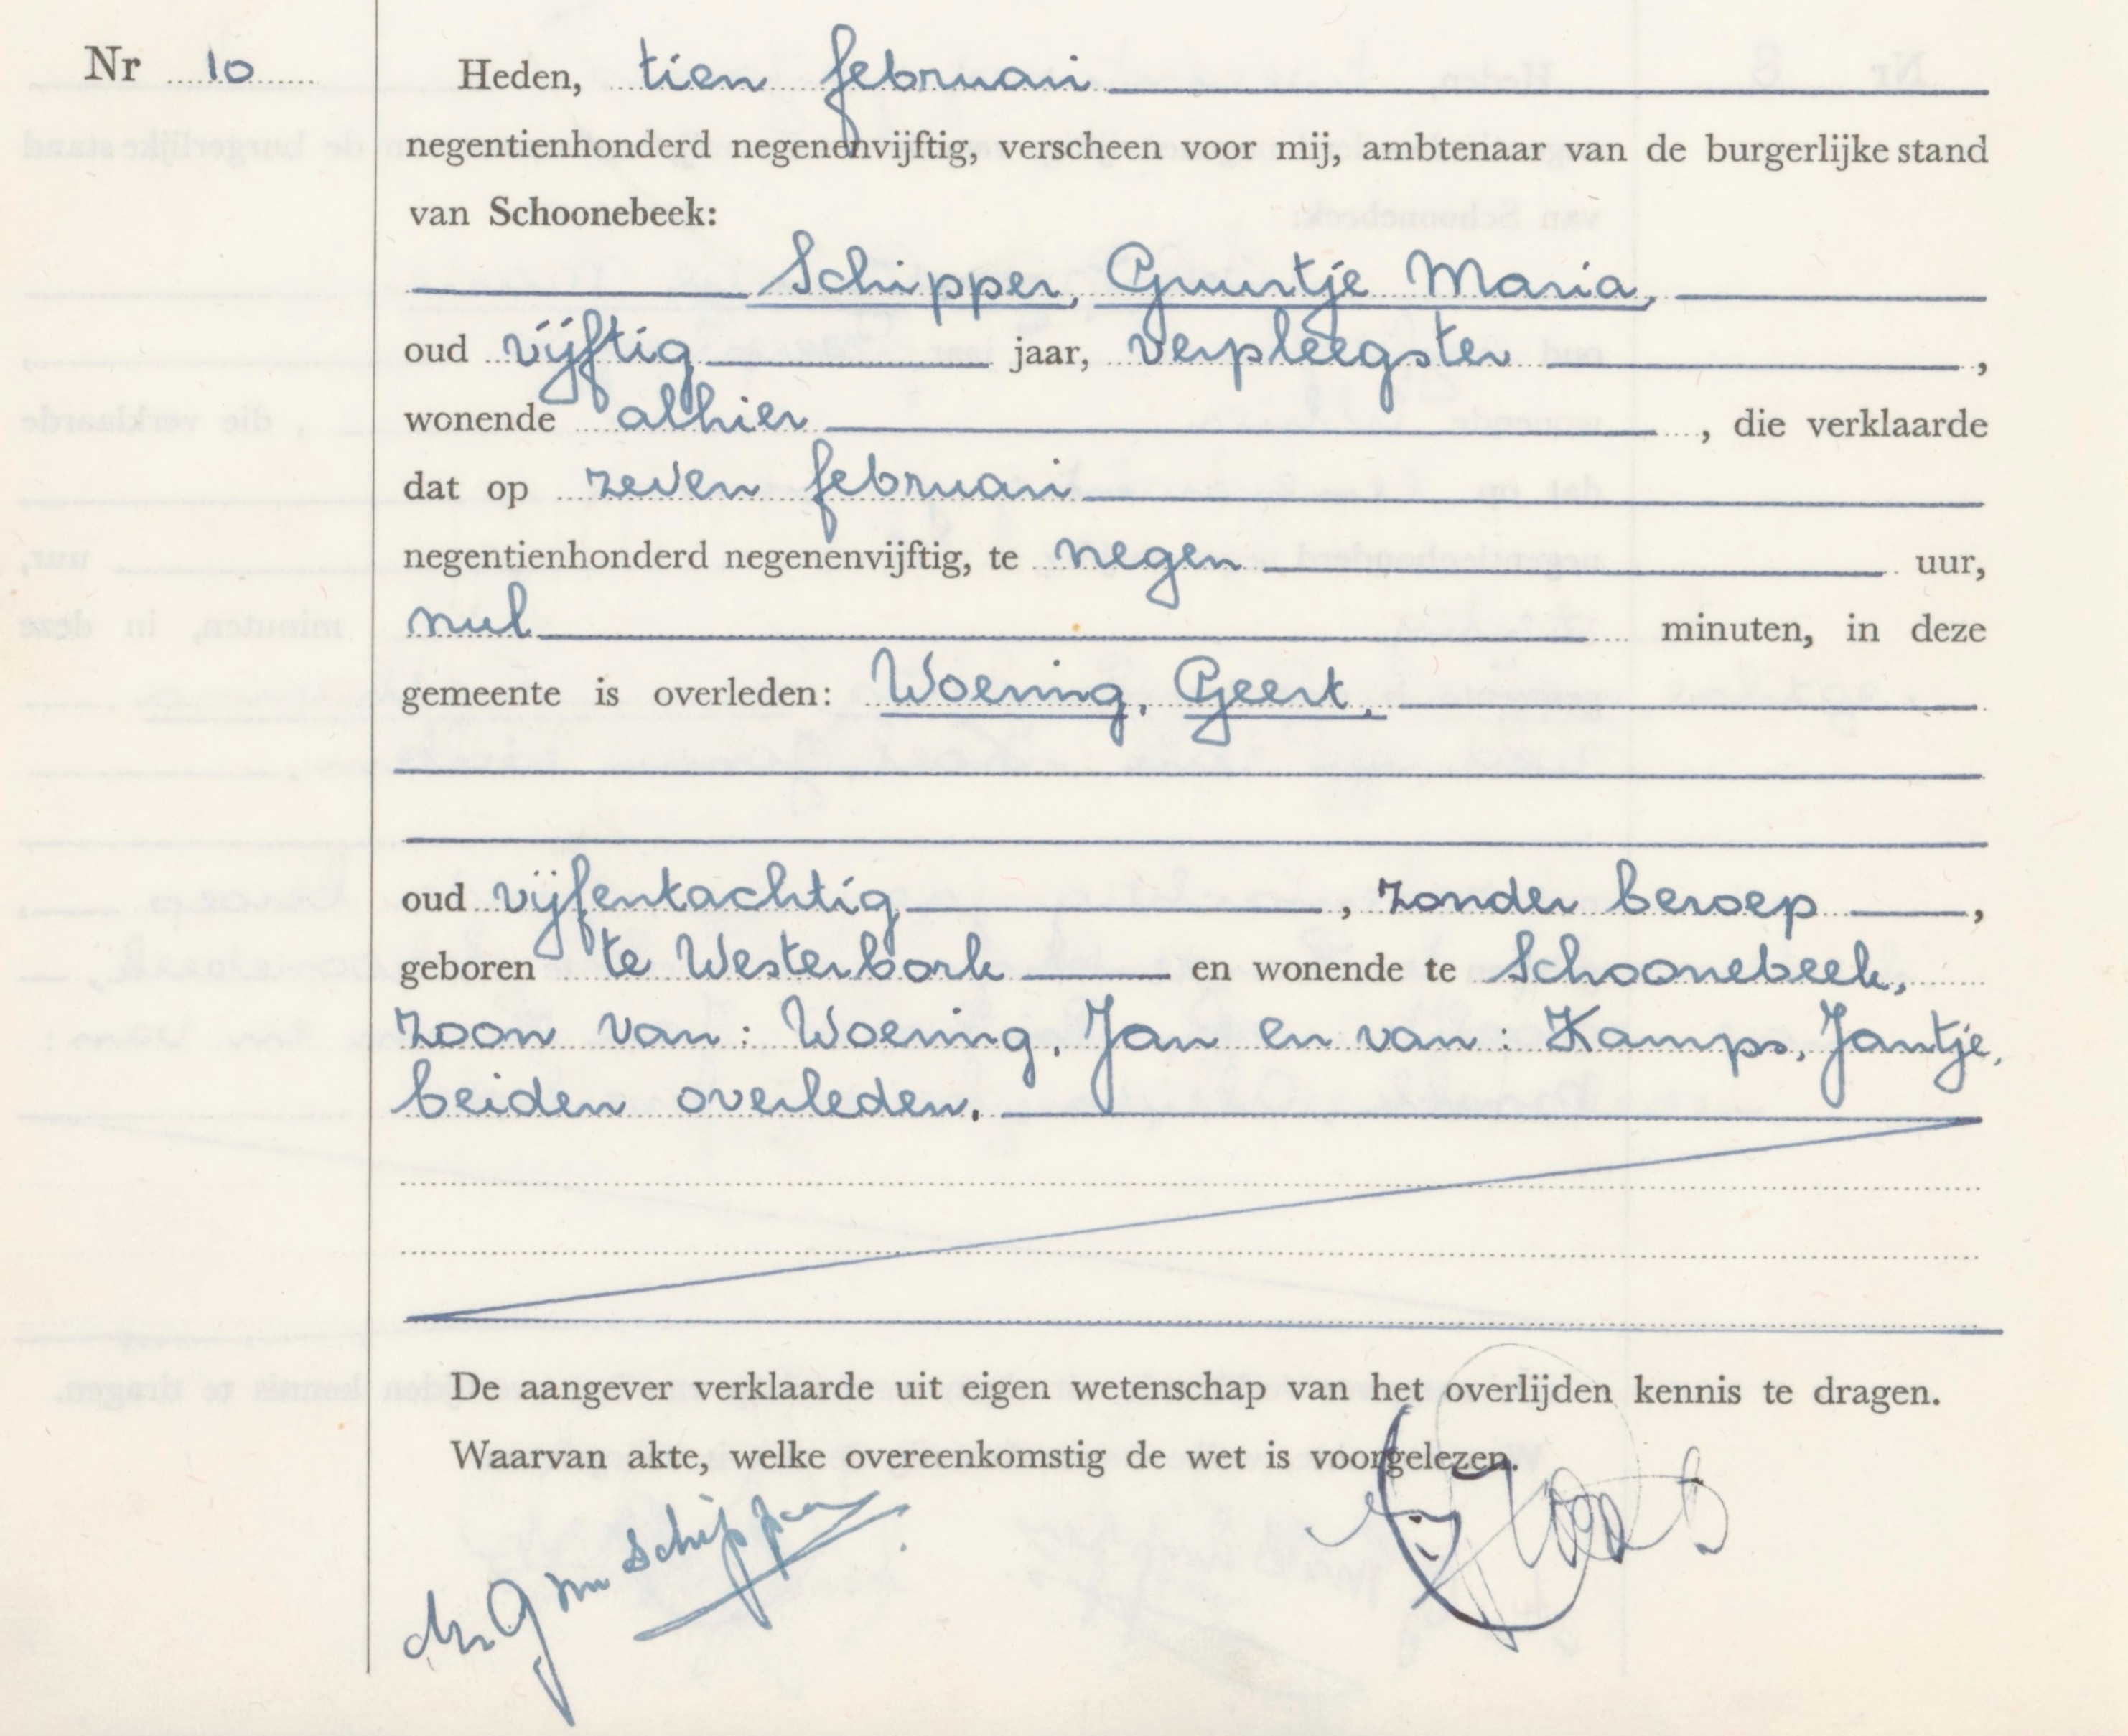 Nr 10
Heden, tien februari
negentienhonderd negenenvijftig, verscheen voor mij, ambtenaar van de burgerlijke stand
van Schoonebeek:
Schipper, Gruurtje Maria,
oud vijftig jaar, verpleegster,
wonende alhier, die verklaarde
dat op zeven februari
negentienhonderd negenenvijftig, te negen uur,
nul minuten, in deze
gemeente is overleden: Woering, Geert,
oud vijfentachtig, zonder beroep,
geboren te Westerbork en wonende te Schoonebeek,
zoon van: Woering, Jan en van: Kamps, Jantje,
beiden overleden.
De aangever verklaarde uit eigen wetenschap van het overlijden kennis te dragen.
Waarvan akte, welke overeenkomstig de wet is voorgelezen.
Schipper